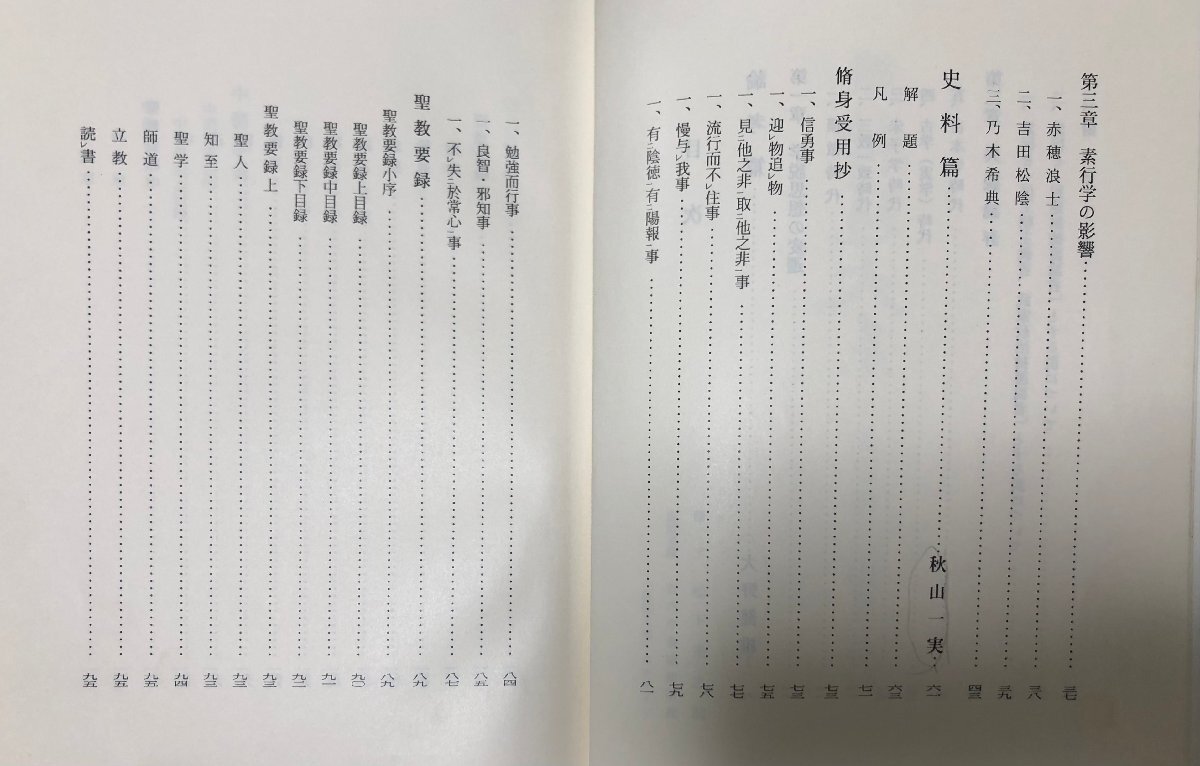 第三章　素行学の影響……三七
一、赤穂浪士……三八
二、吉田松陰……三九
三、乃木希典……四三
史料篇……秋山一実…六一
解題……六三
凡例……七一
脩身受用抄……七三
一、信勇事……七三
一、迎レ物追レ物……七五
一、見二他之非一取二他之非一事……七七
一、流行而不レ住事……七八
一、慢与レ我事……七九
一、有二陰徳一有二陽報一事……八一
一、勉強而行事……八四
一、良智・邪知事……八五
一、不レ失二於常心一事……八七
聖教要録……八九
聖教要録小序……八九
聖教要録上目録……九〇
聖教要録中目録……九一
聖教要録下目録……九二
聖教要録上……九三
聖人……九三
知至……九三
聖学……九四
師道……九五
立教……九五
読レ書……九五